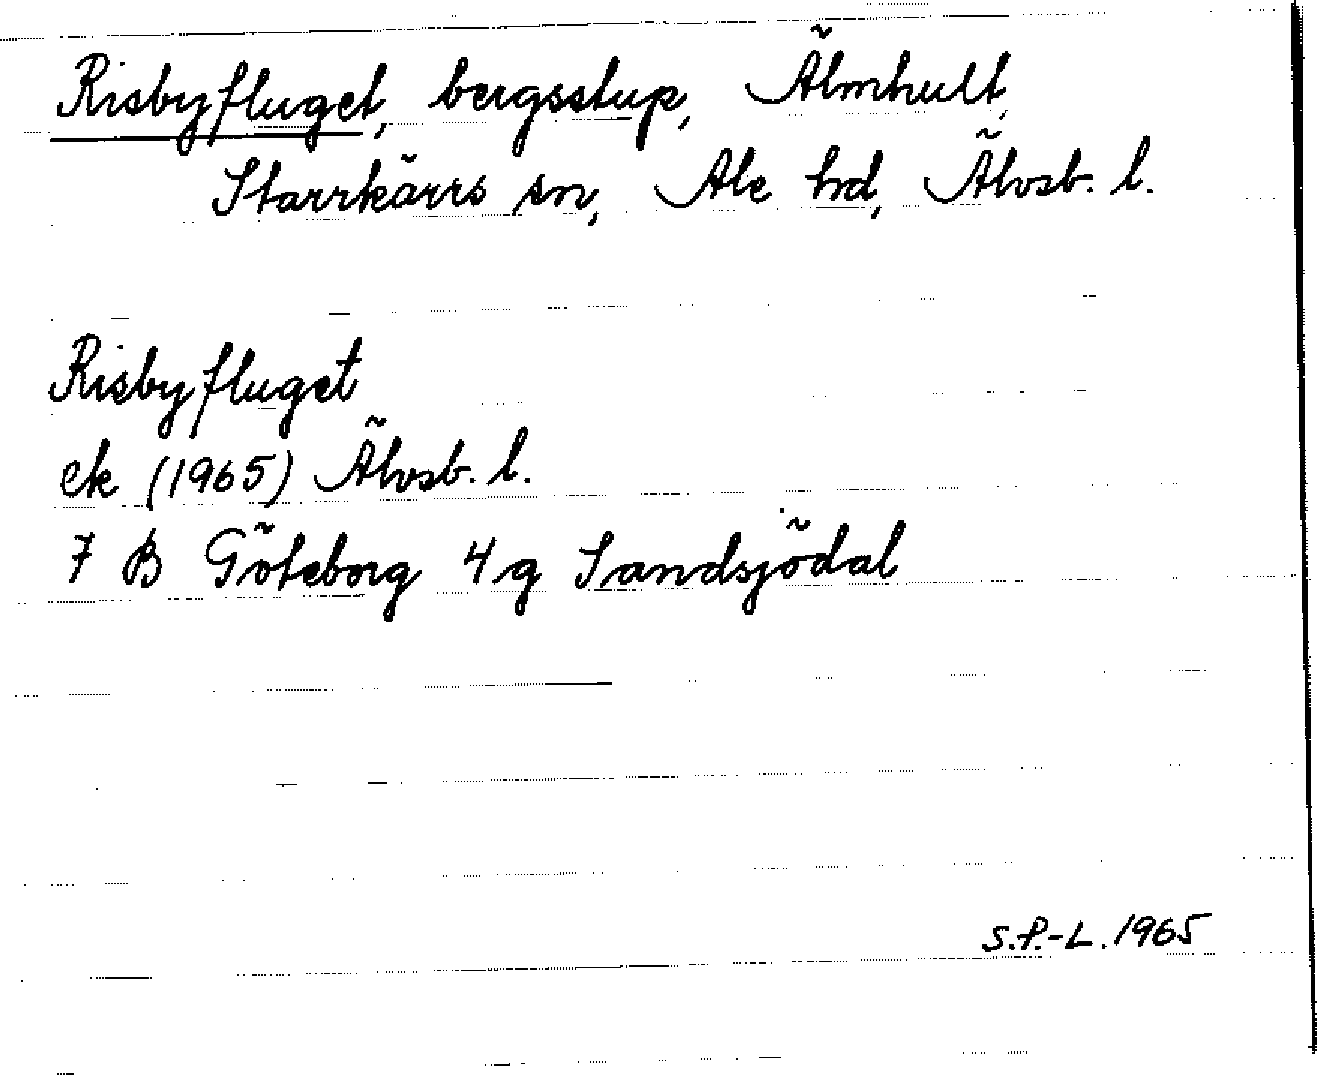 Risbyfluget, bergsstup, Älmhult,
Starrkärrs sn, Ale hd, Älvsb. l.
Risbyfluget
ek (1965) Älvsb. l.
7 B Göteborg 4 g Sandsjödal
S.P.-L. 1965